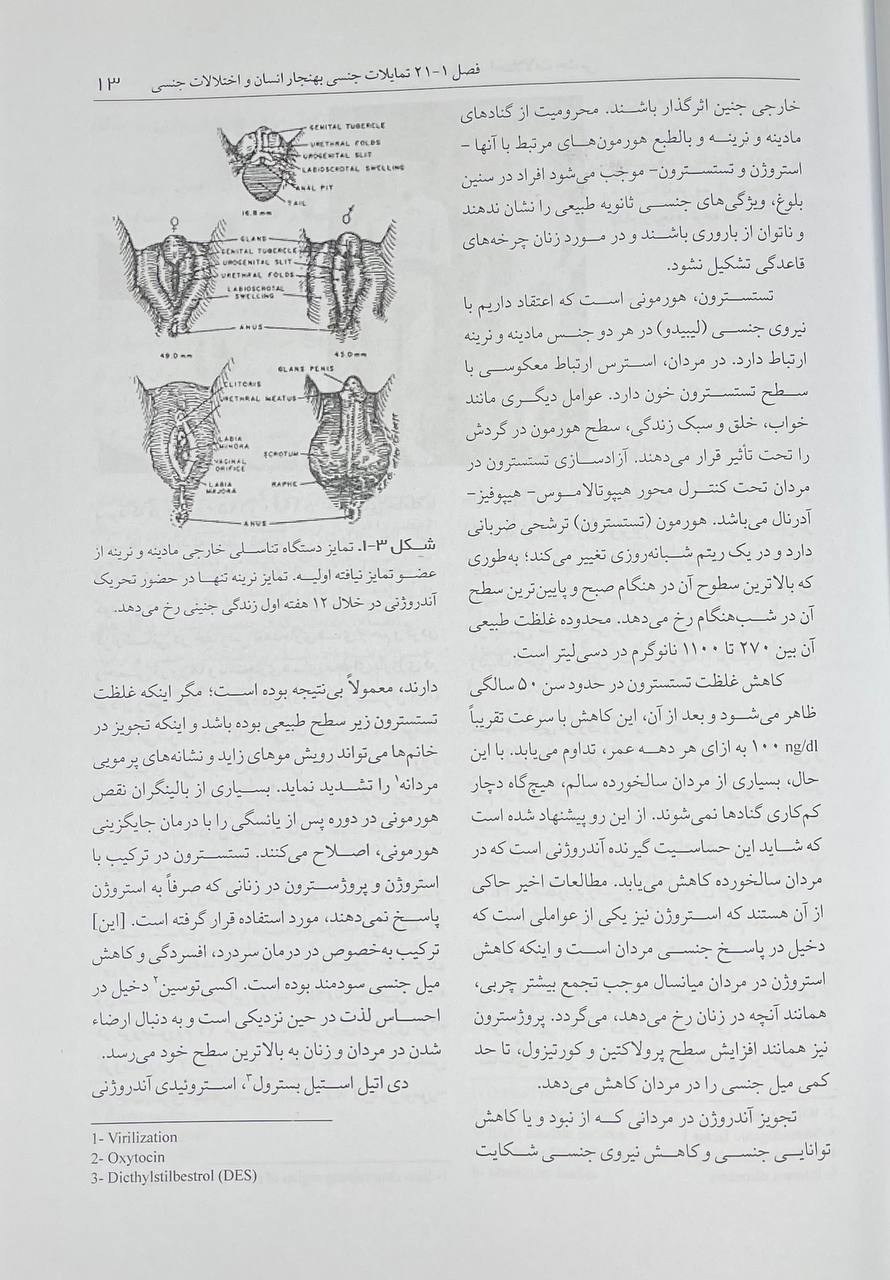 فصل ۱-۲۱ تمایلات جنسی بهنجار انسان و اختلالات جنسی ۱۳
خارجی جنین اثرگذار باشند. محرومیت از گنادهای
مادینه و نرینه و بالطبع هورمون‌های مرتبط با آنها -
استروژن و تستسترون- موجب می‌شود افراد در سنین
بلوغ، ویژگی‌های جنسی ثانویه طبیعی را نشان ندهند
و ناتوان از باروری باشند و در مورد زنان چرخه‌های
قاعدگی تشکیل نشود.
تستسترون، هورمونی است که اعتقاد داریم با
نیروی جنسی (لیبیدو) در هر دو جنس مادینه و نرینه
ارتباط دارد. در مردان، استرس ارتباط معکوسی با
سطح تستسترون خون دارد. عوامل دیگری مانند
خواب، خلق و سبک زندگی، سطح هورمون در گردش
را تحت تأثیر قرار می‌دهند. آزادسازی تستسترون در
مردان تحت کنترل محور هیپوتالاموس- هیپوفیز-
آدرنال می‌باشد. هورمون (تستسترون) ترشحی ضربانی
دارد و در یک ریتم شبانه‌روزی تغییر می‌کند؛ به‌طوری
که بالاترین سطوح آن در هنگام صبح و پایین‌ترین سطح
آن در شب‌هنگام رخ می‌دهد. محدوده غلظت طبیعی
آن بین ۲۷۰ تا ۱۱۰۰ نانوگرم در دسی‌لیتر است.
کاهش غلظت تستسترون در حدود سن ۵۰ سالگی
ظاهر می‌شود و بعد از آن، این کاهش با سرعت تقریباً
۱۰۰ ng/dl به ازای هر دهه عمر، تداوم می‌یابد. با این
حال، بسیاری از مردان سالخورده سالم، هیچ‌گاه دچار
کم‌کاری گنادها نمی‌شوند. از این رو پیشنهاد شده است
که شاید این حساسیت گیرنده آندروژنی است که در
مردان سالخورده کاهش می‌یابد. مطالعات اخیر حاکی
از آن هستند که استروژن نیز یکی از عواملی است که
دخیل در پاسخ جنسی مردان است و اینکه کاهش
استروژن در مردان میانسال موجب تجمع بیشتر چربی،
همانند آنچه در زنان رخ می‌دهد، می‌گردد. پروژسترون
نیز همانند افزایش سطح پرولاکتین و کورتیزول، تا حد
کمی میل جنسی را در مردان کاهش می‌دهد.
تجویز آندروژن در مردانی که از نبود و یا کاهش
توانایی جنسی و کاهش نیروی جنسی شکایت
GENITAL TUBERCLE
URETHRAL FOLDS
UROGENITAL SLIT
LABIOSCROTAL SWELLING
ANAL PIT
TAIL
16.8 mm
♀ ♂
GLANS
GENITAL TUBERCLE
UROGENITAL SLIT
URETHRAL FOLDS
LABIOSCROTAL
SWELLING
ANUS
49.0 mm 45.0 mm
GLANS PENIS
CLITORIS
URETHRAL MEATUS
LABIA
MINORA
SCROTUM
VAGINAL
ORIFICE
LABIA
MAJORA
RAPHE
ANUS
شکل ۳-۱. تمایز دستگاه تناسلی خارجی مادینه و نرینه از
عضو تمایز نیافته اولیه. تمایز نرینه تنها در حضور تحریک
آندروژنی در خلال ۱۲ هفته اول زندگی جنینی رخ می‌دهد.
دارند، معمولاً بی‌نتیجه بوده است؛ مگر اینکه غلظت
تستسترون زیر سطح طبیعی بوده باشد و اینکه تجویز در
خانم‌ها می‌تواند رویش موهای زاید و نشانه‌های پرمویی
مردانه۱ را تشدید نماید. بسیاری از بالینگران نقص
هورمونی در دوره پس از یائسگی را با درمان جایگزینی
هورمونی، اصلاح می‌کنند. تستسترون در ترکیب با
استروژن و پروژسترون در زنانی که صرفاً به استروژن
پاسخ نمی‌دهند، مورد استفاده قرار گرفته است. [این]
ترکیب به‌خصوص در درمان سردرد، افسردگی و کاهش
میل جنسی سودمند بوده است. اکسی‌توسین۲ دخیل در
احساس لذت در حین نزدیکی است و به دنبال ارضاء
شدن در مردان و زنان به بالاترین سطح خود می‌رسد.
دی اتیل استیل بسترول۳، استروئیدی آندروژنی
1- Virilization
2- Oxytocin
3- Dicthylstilbestrol (DES)